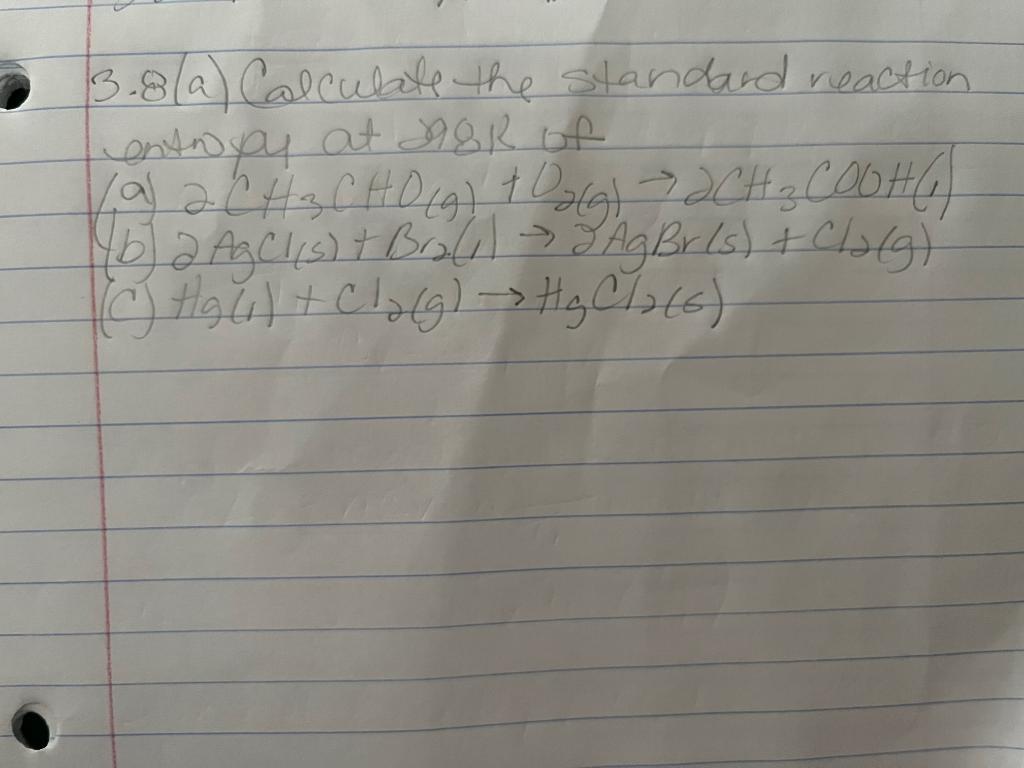 3.8(a) Calculate the standard reaction
entropy at 298K of
(a) 2CH3CHO(g) + O2(g) → 2CH3COOH(l)
(b) 2AgCl(s) + Br2(l) → 2AgBr(s) + Cl2(g)
(c) Hg(l) + Cl2(g) → HgCl2(s)